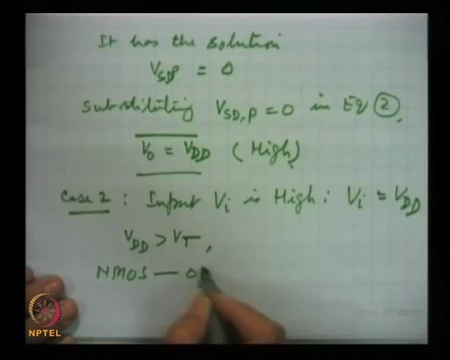 It has the solution
V_SDP = 0
Substituting V_SD,P = 0 in Eq ②,
V_0 = V_DD (High)
Case 2 : Input V_i is High : V_i = V_DD
V_DD > V_T ,
NMOS — O
NPTEL